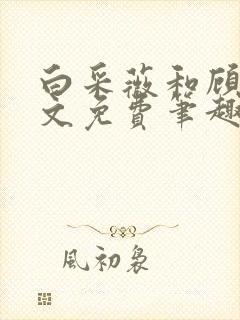 白采薇和顾
文免费笔趣
风初袅